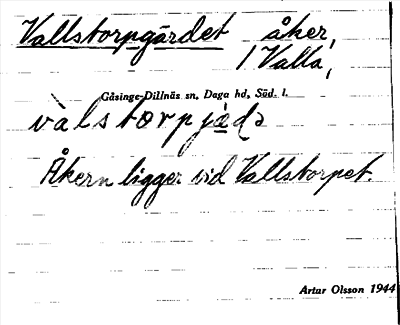 Vallstorpgärdet åker,
1 Valla,
Gåsinge-Dillnäs sn, Daga hd, Söd. l.
Åkern ligger vid Vallstorpet.
Artur Olsson 1944